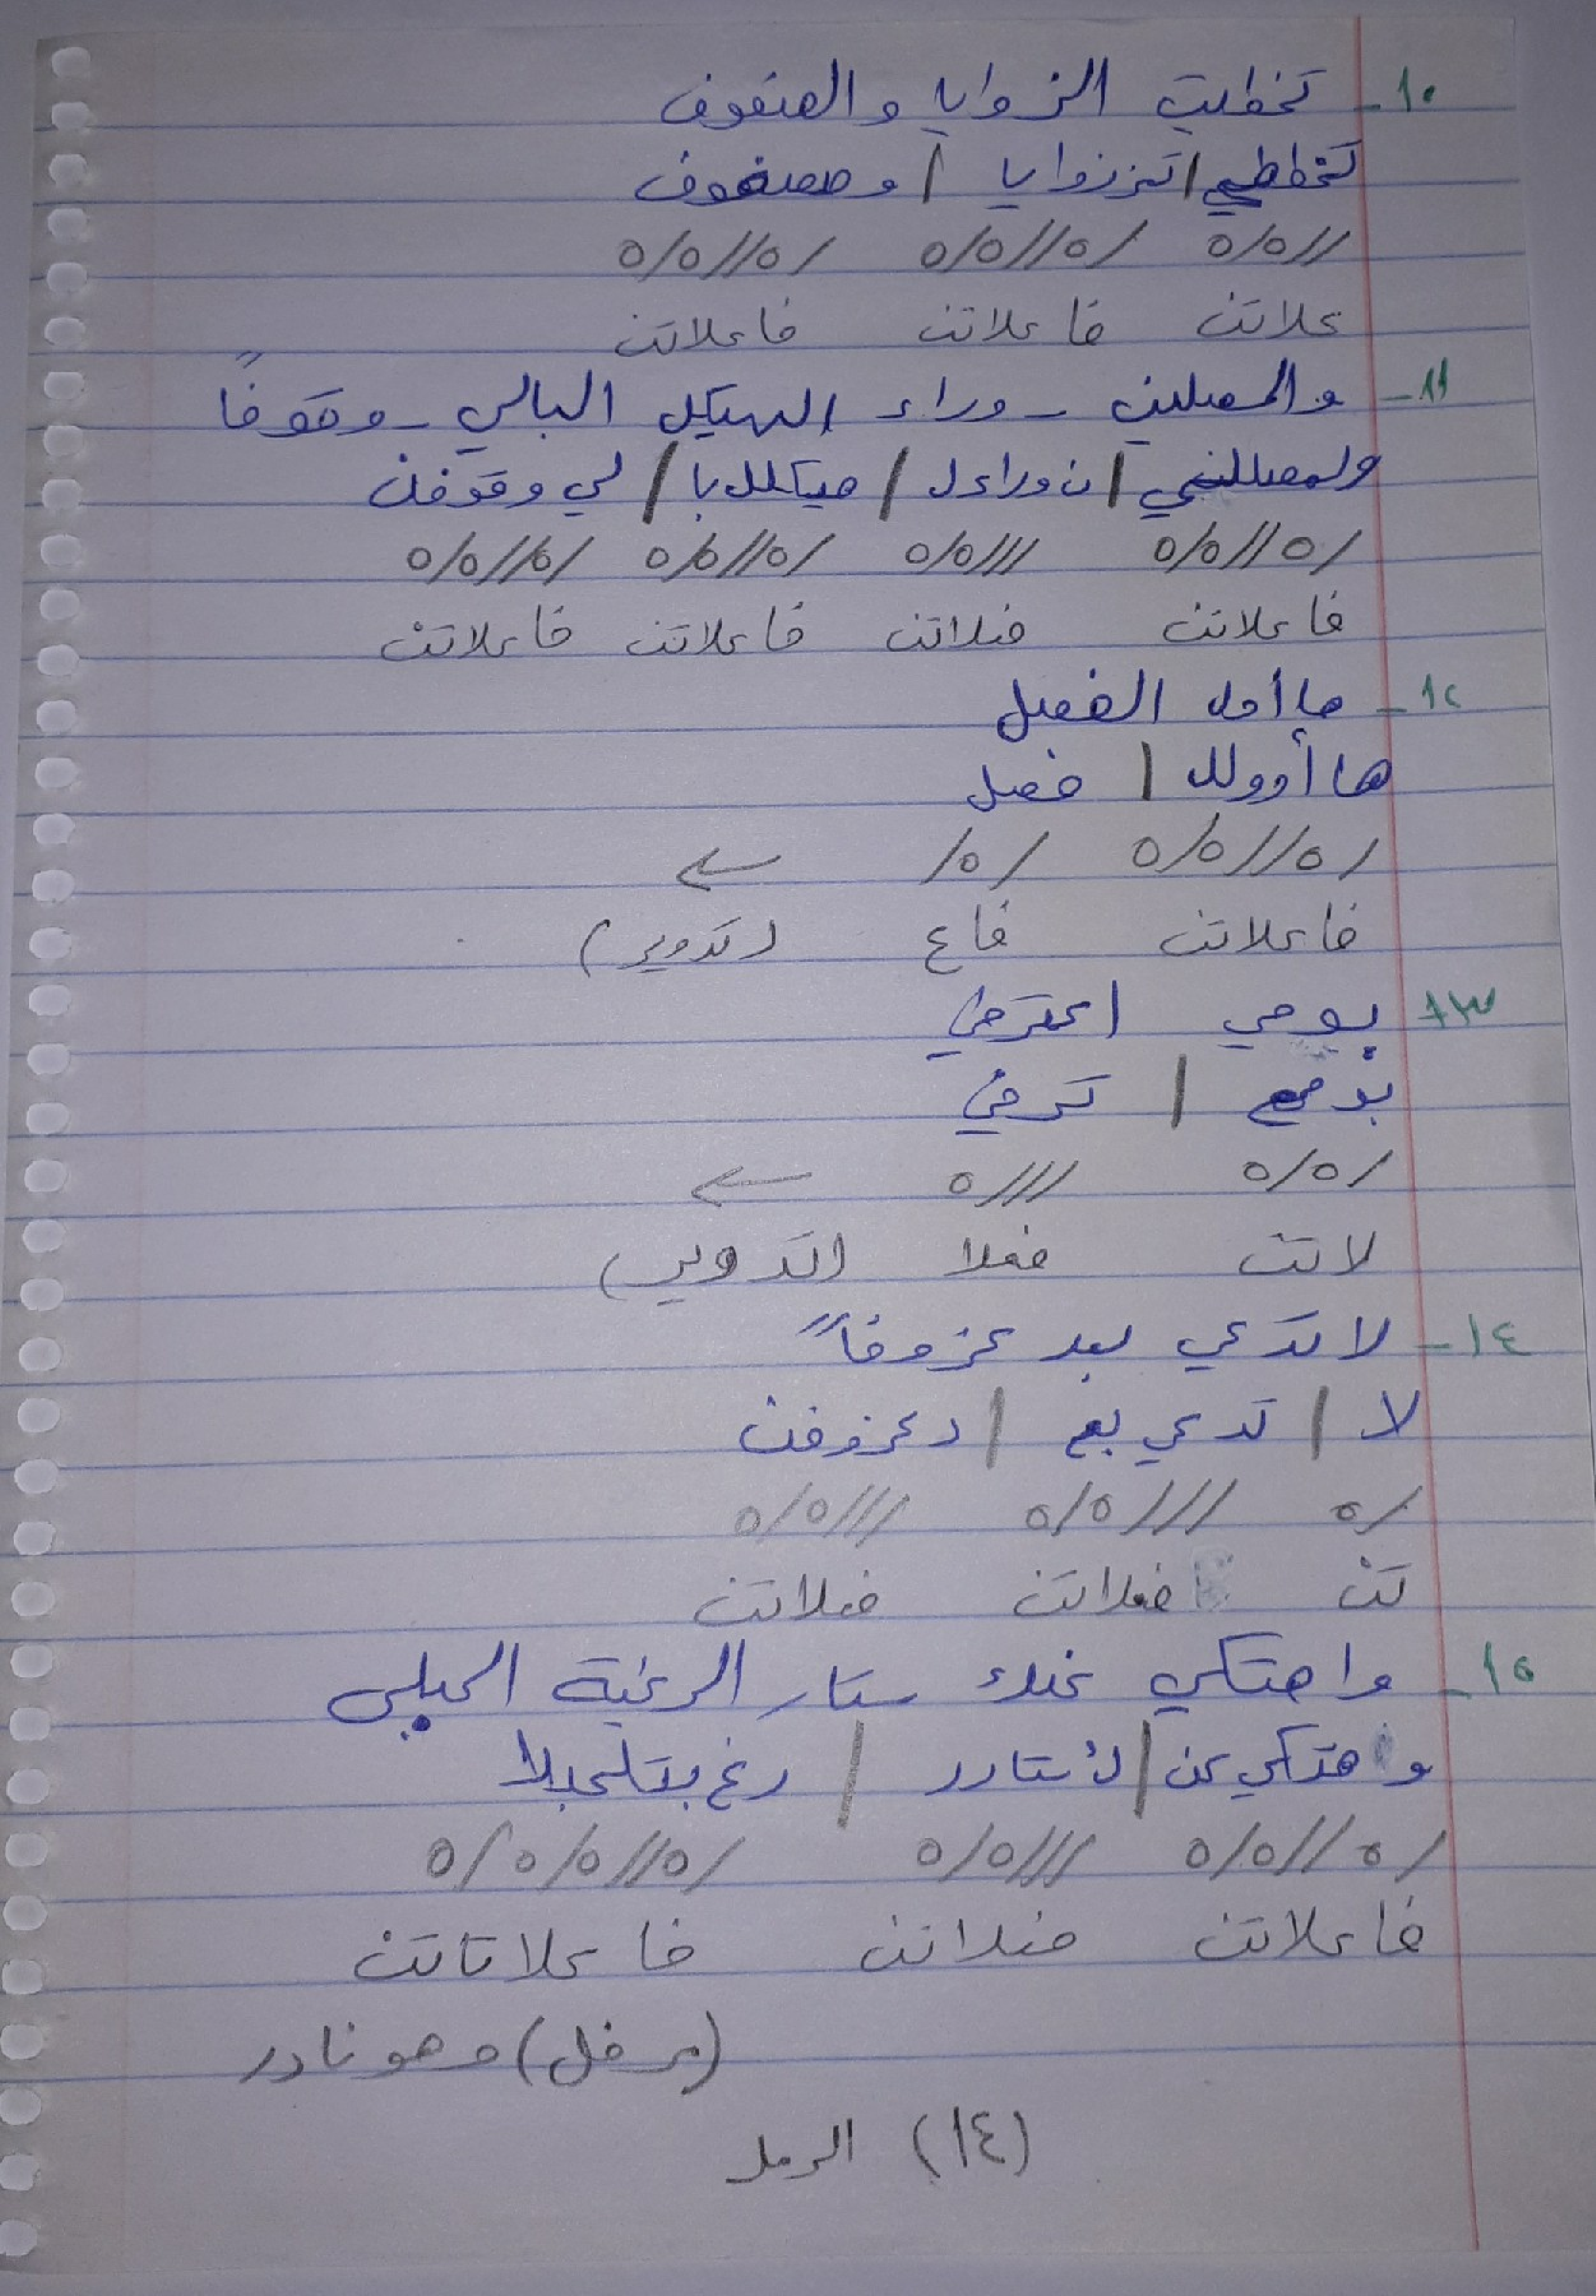 ١٠- تخطيت الزوايا والصفوف
تخططي / تززوايا / وصصفوف
//٥/٥ /٥//٥/٥ /٥//٥/٥
علاتن فاعلاتن فاعلاتن
١١- والمصلين - وراء الهيكل البالي - وقوفاً
ولمصللي / ن وراءل / هيكلل با / لي وقوفن
/٥//٥/٥ ///٥/٥ /٥//٥/٥ /٥//٥/٥
فاعلاتن فعلاتن فاعلاتن فاعلاتن
١٢- ها أول الفصل
ها أوولل / فصل
/٥//٥/٥ /٥/ ←
فاعلاتن فاع (تدوير)
١٣ بوحي اعترفي
بوحع / ترفي
/٥/٥ ///٥ ←
لاتن فعلا (تدوير)
١٤- لا تدعي بعد عزوفاً
لا / تدعي بع / د عزوفن
/٥ ///٥/٥ ///٥/٥
تن فعلاتن فعلاتن
١٥- واهتكي عنك ستار الرغبة الحبلى
وهتكي عن / ك ستارر / رغبتلحبلا
/٥//٥/٥ ///٥/٥ /٥//٥/٥/٥
فاعلاتن فعلاتن فاعلاتاتن
(مرفل) وهو نادر
(١٤) الرمل